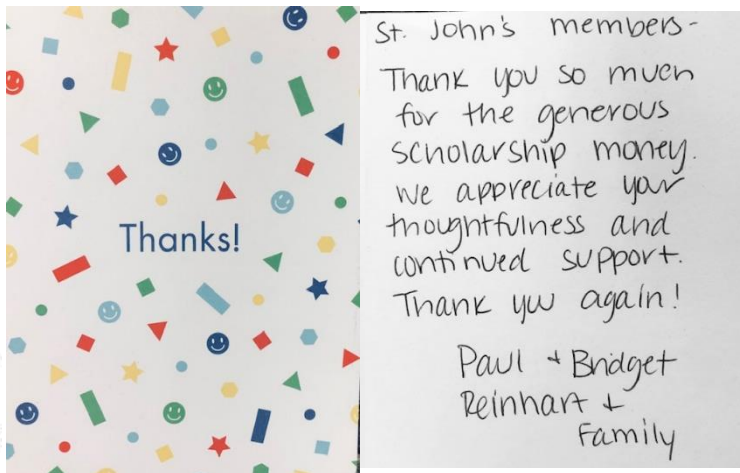 Thanks!
St. John's members-
Thank you so much
for the generous
scholarship money.
we appreciate your
thoughtfulness and
continued support.
Thank you again!
Paul + Bridget
Reinhart +
Family